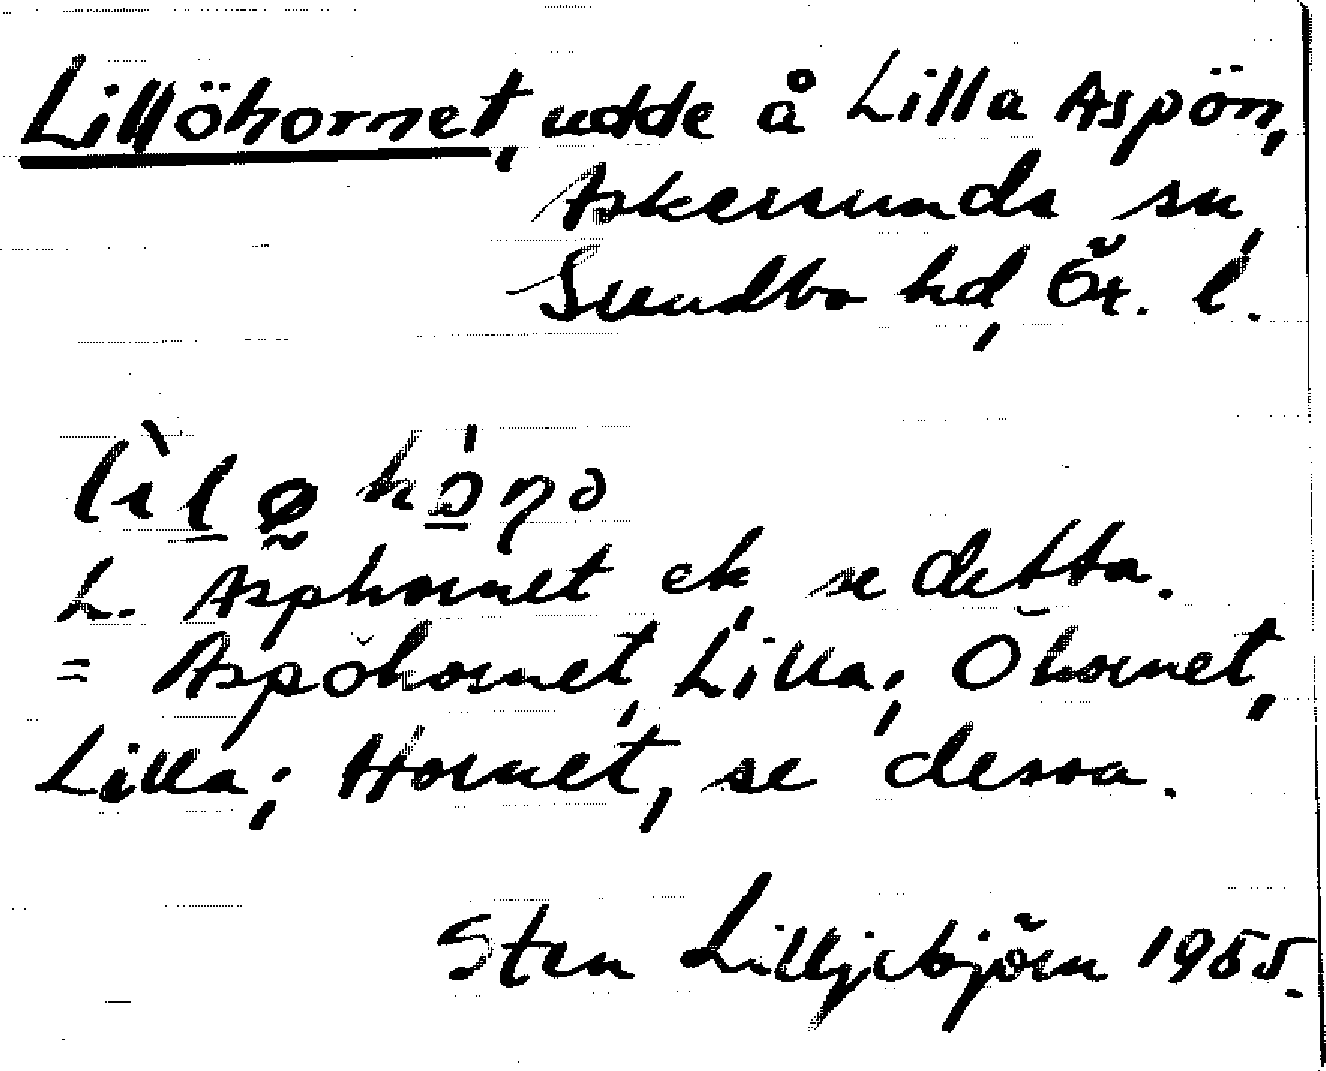 Lillöhornet, udde å Lilla Aspön,
Askersunds sn,
Sundbo hd, Ör. l.
L. Asphornet ek, se detta.
= Aspöhornet, Lilla; Öhornet,
Lilla; Hornet, se dessa.
Sten Lilljebjörn 1965.